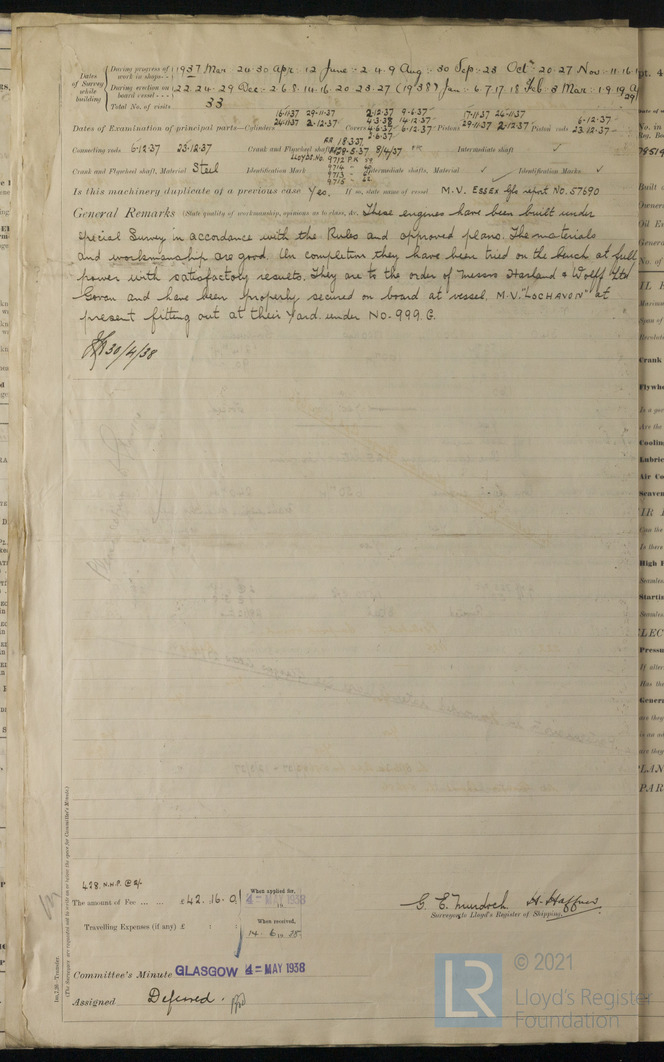 Dates of Survey while building
During progress of work in shops - - 1937 Mar 24.30 Apr. 12 June 2.4.9 Aug. 30 Sep. 23 Octr 20.27 Nov. 11.16.
During erection on board vessel - - - 22.24.29 Dec. 2.6.8.14.16.20.23.27 (1938) Jan. 6.7.17.18 Feb. 3 Mar. 1.9.19.
Total No. of visits 33
Dates of Examination of principal parts—Cylinders 16.11.37 29.11.37 24.11.37 2.12.37 Covers 2.12.37 9.6.37 4.3.38 14.12.37 4.6.37 6.12.37 Pistons 17.11.37 24.11.37 29.11.37 2.12.37 Piston rods 6.12.37 23.12.37
Connecting rods 6.12.37 23.12.37 Crank and Flywheel shafts 18.3.37 29.5.37 8/4/37 Intermediate shaft ✓
Crank and Flywheel shaft, Material Steel Identification Mark LLOYDS No. 9712 9713 9714 9715 Intermediate shafts, Material ✓ Identification Marks ✓
Is this machinery duplicate of a previous case Yes. If so, state name of vessel M.V. ESSEX Gls report No. 57690
General Remarks (State quality of workmanship, opinions as to class, &c. These engines have been built under
special Survey in accordance with the Rules and approved plans. The materials
and workmanship are good. On completion they have been tried on the bench at full
power with satisfactory results. They are to the order of Messrs Harland & Wolff Ltd
Govan and have been properly secured on board at vessel. M.V. "LOCHAVON" at
present fitting out at their Yard. under No. 999.G.
30/4/38
428 N.H.P. @ 2/-
The amount of Fee ... ... £42.16.0
When applied for,
4 - MAY 1938
Travelling Expenses (if any) £
When received,
14.6.1938
G. E. Murdoch H. Haffner
Surveyors to Lloyd's Register of Shipping.
Committee's Minute GLASGOW 4 - MAY 1938
Assigned Deferred.
(The Surveyors are requested not to write on or below the space for Committee's Minute.)
© 2021
LR
Lloyd's Register
Foundation